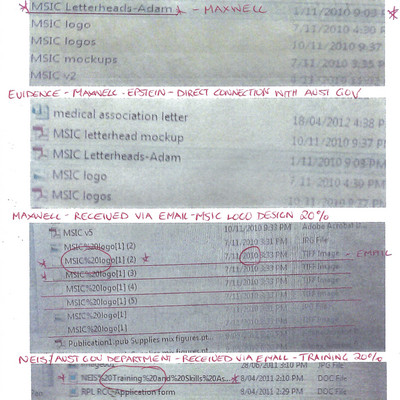 * MSIC Letterheads-Adam * - MAXWELL 1/11/2010 9:03 *
MSIC logo 7/11/2010 4:30 P
MSIC logos 10/11/2010 9:37
MSIC mockups 7/11/2010 3:35 P
MSIC v2
EVIDENCE - MAXWELL - EPSTEIN - DIRECT CONNECTION WITH AUST GOV
medical association letter 18/04/2012 4:38 P
MSIC letterhead mockup 10/11/2010 9:37 P
MSIC Letterheads-Adam 1/11/2010 9:03 PM
MSIC logo 7/11/2010 4:30 PM
MSIC logos 10/11/2010 9:37
MAXWELL - RECEIVED VIA EMAIL - MSIC LOGO DESIGN 20%
MSIC v5 10/11/2010 9:33 PM Adobe Acrobat
MSIC%20logo[1] (2) 7/11/2010 3:31 PM JPG File
* MSIC%20logo[1] (2) * 7/11/2010 3:33 PM TIFF Image - EMAIL
* MSIC%20logo[1] (3) 7/11/2010 3:33 PM TIFF Image
MSIC%20logo[1] (4) 7/11/2010 3:33 PM TIFF Image
MSIC%20logo[1] (5) 7/11/2010 3:33 PM TIFF Image
MSIC%20logo[1] TIFF Image
MSIC%20logo[1] TIFF Image
Publication1.pub Supplies mix figures pt...
NEIS/AUST GOV DEPARTMENT - RECEIVED VIA EMAIL - TRAINING 20%
28/06/2011 3:10 PM JPG File
* NEIS%20Training%20and%20Skills%20As... * 8/04/2011 2:10 PM DOC File
RPL RCC-Application form 8/04/2011 2:29 PM DOC File